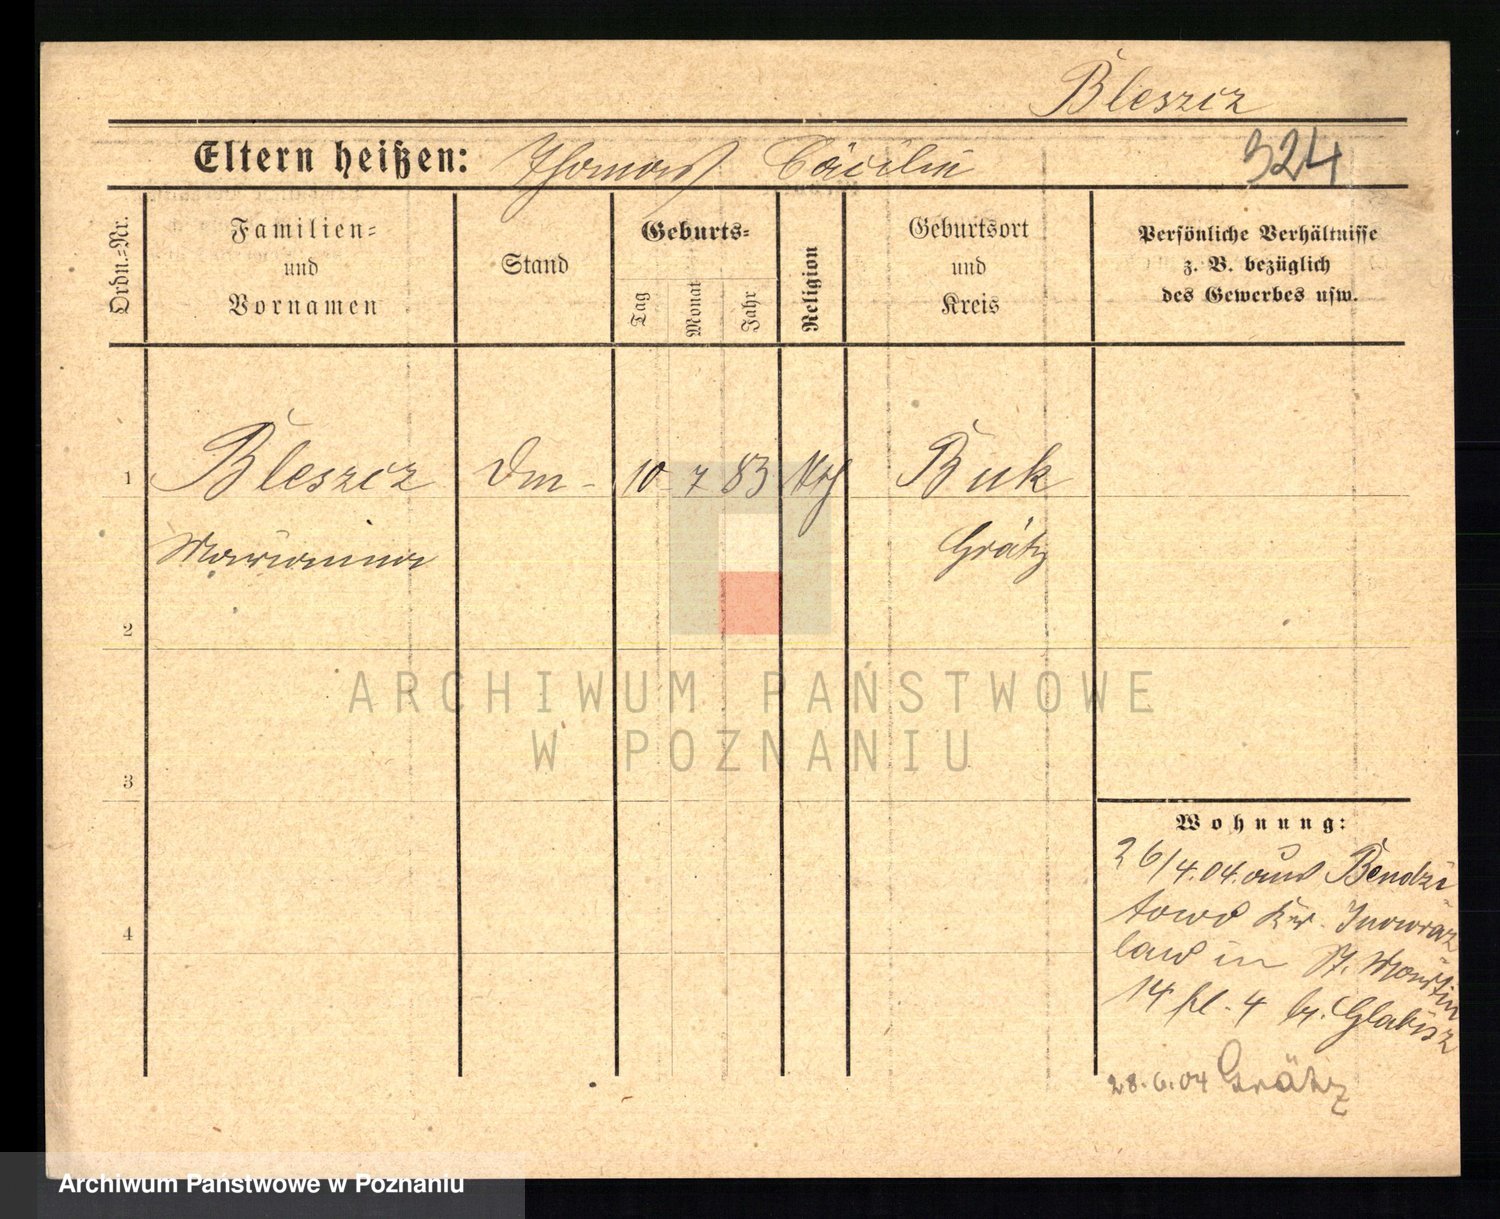 Bleszcz
Eltern heißen: Thomas Cäcilie
324
Ordn.-Nr.
Familien-
und
Vornamen
Stand
Geburts-
Tag
Monat
Jahr
Religion
Geburtsort
und
Kreis
Persönliche Verhältnisse
z. B. bezüglich
des Gewerbes usw.
1 Bleszcz 10 7 83 Buk
Marianna Grätz
2
3
4
ARCHIWUM PAŃSTWOWE
W POZNANIU
Wohnung:
26/4.04. aus Bendzi
towo Kr. Inowraz
law in St. Martin
14 ptl. 4 b. Glabisz
28.6.04 Grätz
Archiwum Państwowe w Poznaniu